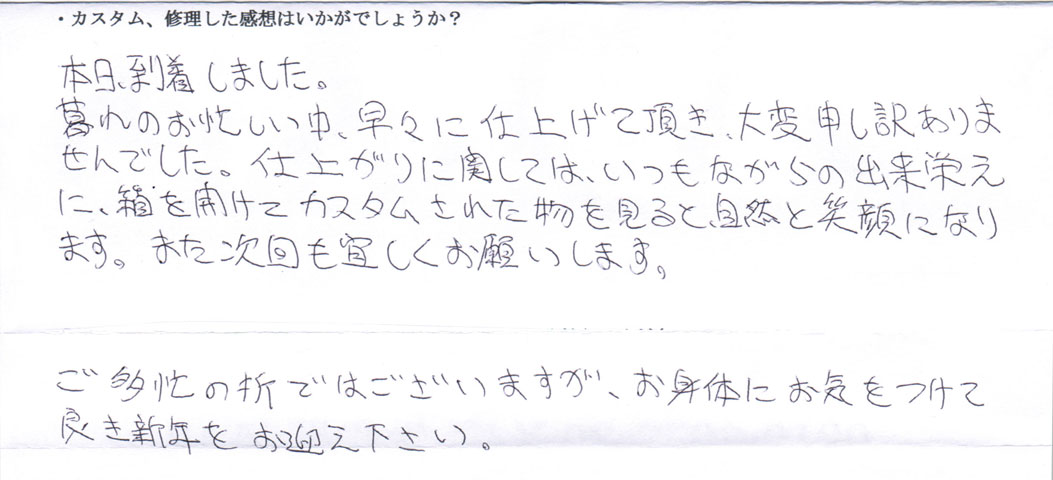 ・カスタム、修理した感想はいかがでしょうか？
本日、到着しました。
暮れのお忙しい中、早々に仕上げて頂き、大変申し訳ありま
せんでした。仕上がりに関しては、いつもながらの出来栄え
に、箱を開けてカスタムされた物を見ると、自然と笑顔になり
ます。また次回も宜しくお願いします。
ご多忙の折ではございますが、お身体にお気をつけて
良き新年をお迎え下さい。